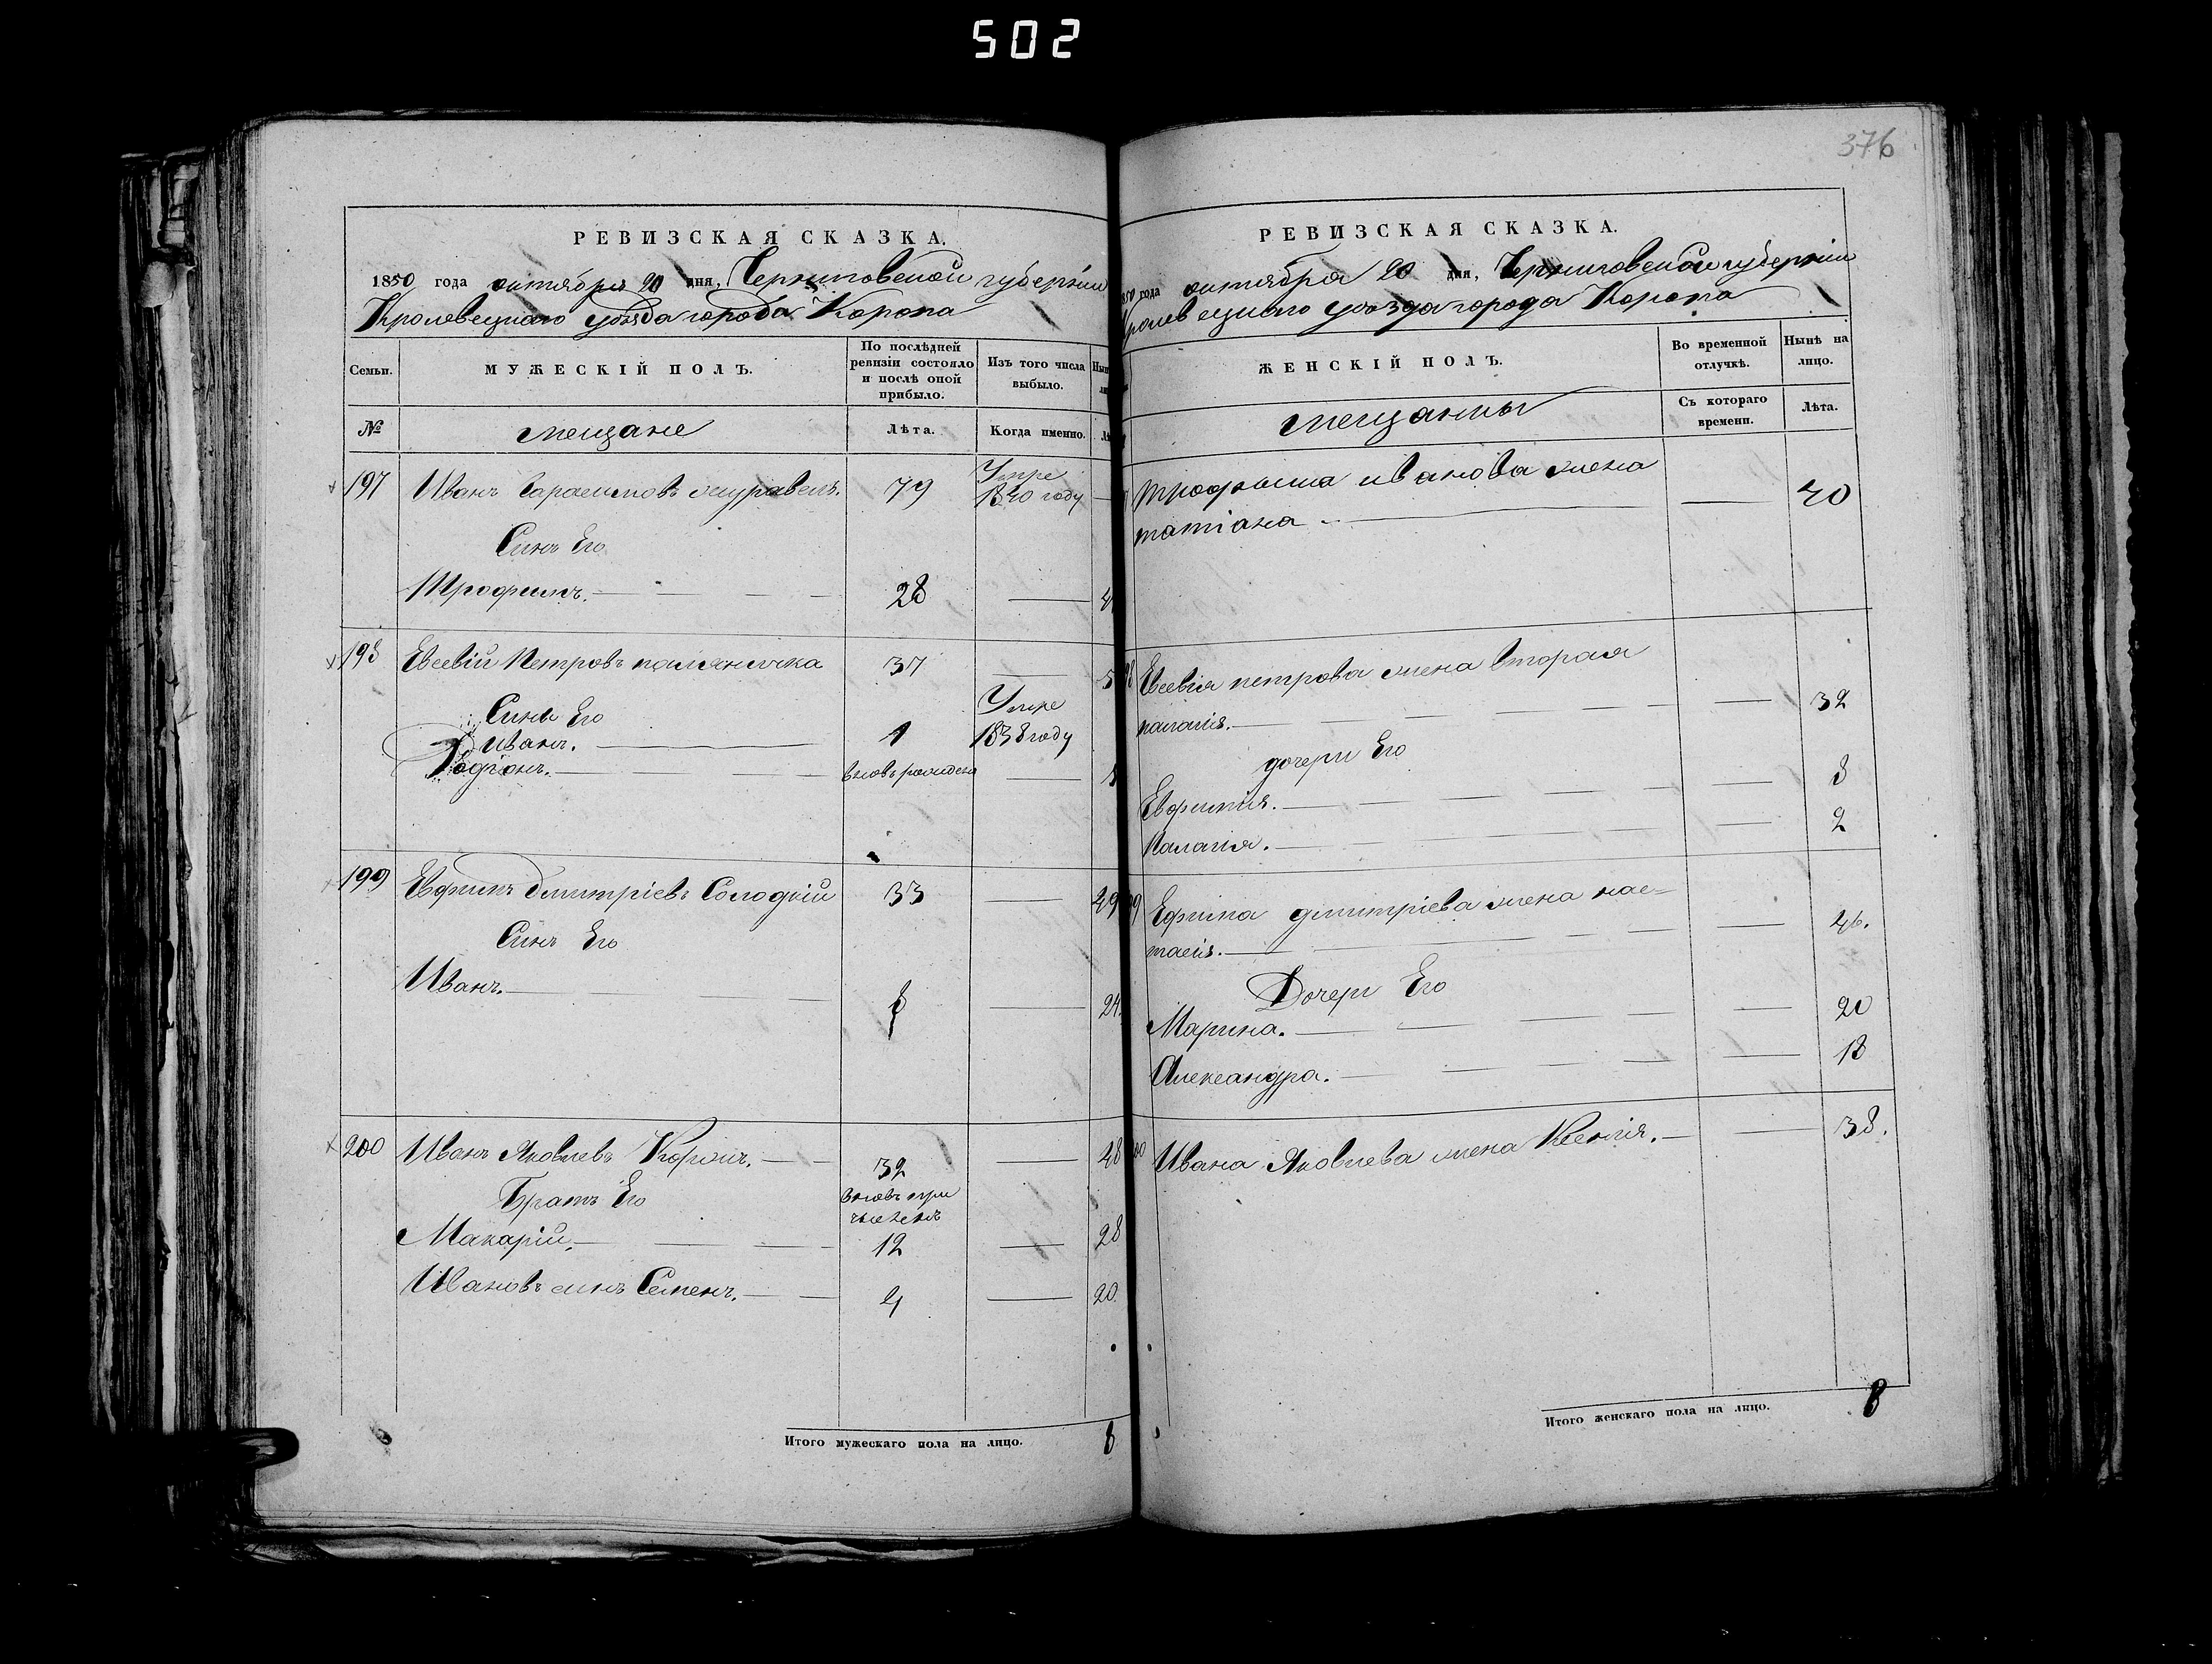 502
376
РЕВИЗСКАЯ СКАЗКА.
1850 года октября 20 дня, Черниговской губернии
Кролевецкаго уѣзда города Коропа
Семьи.
МУЖЕСКІЙ ПОЛЪ.
По послѣдней ревизіи состояло и послѣ оной прибыло.
Изъ того числа выбыло.
№
мещане
Лѣта.
Когда именно.
197 Иванъ Герасимовъ журавель. 79 Умре 1840 году
Синъ Его
Трофимъ. 28
198 Евсевій Петровъ паляничка 37
Сини Его
Иванъ. 1 Умре 1838 году
Родіонъ. вновь рожденъ
199 Ефимъ Дмитріевъ Солодкій 33 49
Синъ Его
Иванъ. 8 24.
200 Иванъ Яковлевъ 32 48
Братъ Его вновь при
численъ
Макарій. 12 28
Ивановъ синъ Семенъ. 4 20.
Итого мужескаго пола на лицо. 8
РЕВИЗСКАЯ СКАЗКА.
года октября 20 дня, Черниговской губерніи
Кролевецкаго уѣзда города Коропа
ЖЕНСКІЙ ПОЛЪ.
Во временной отлучкѣ.
Нынѣ на лицо.
мещанки
Съ котораго времени.
Лѣта.
трофима иванова жена
татіана 40
Евсевія петрова жена вторая
палагія. 32
дочери Его
Евфимія. 8
Палагія. 2
Ефима дмитріева жена нас-
тасія. 46.
Дочери Его
Марина. 20
Александра. 18
Ивана Яковлева жена Ксенія. 38.
Итого женскаго пола на лицо. 8